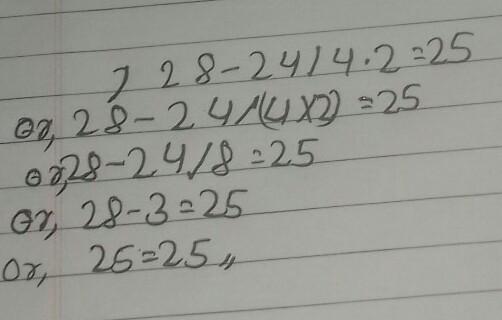 , 28-24/4.2=25
Or, 28-24/(4×2)=25
Or, 28-24/8=25
Or, 28-3=25
Or, 25=25,,